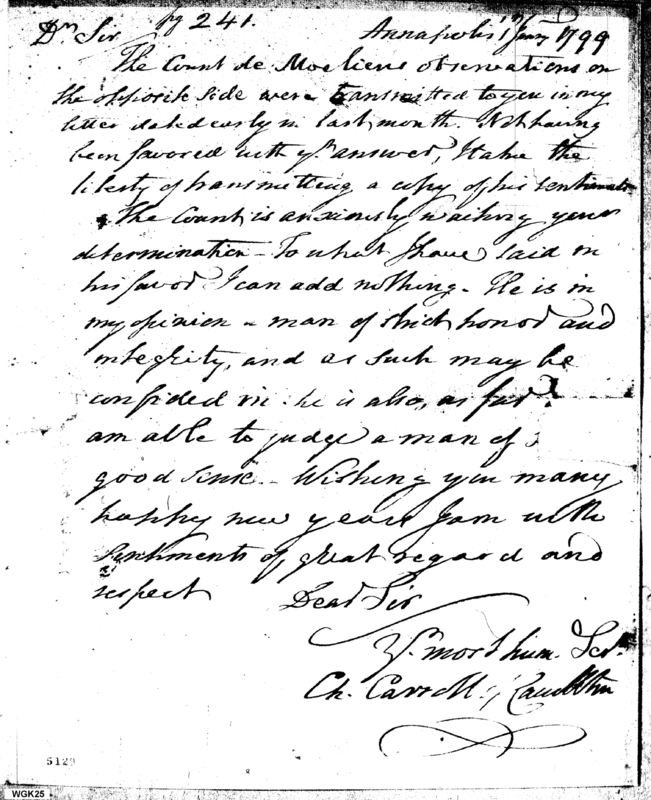 pg 241.
Dr Sir Annapolis 1st Jany 1799
The Count de Moeliens observations on
the opposite side were transmitted to you in my
letter dated early in last month. Not having
been favored with yr. answer, I take the
liberty of transmitting a copy of his sentiments
The Count is anxiously waiting your
determination – To what I have said in
his favor I can add nothing – He is in
my opinion a man of strict honor and
integrity, and as such may be
confided in: he is also, as far as I
am able to judge a man of
good sense – Wishing you many
happy new years I am with
sentiments of great regard and
respect Dear Sir
Yr. most hum. Servt.
Ch. Carroll of Carrollton
5129
WGK25